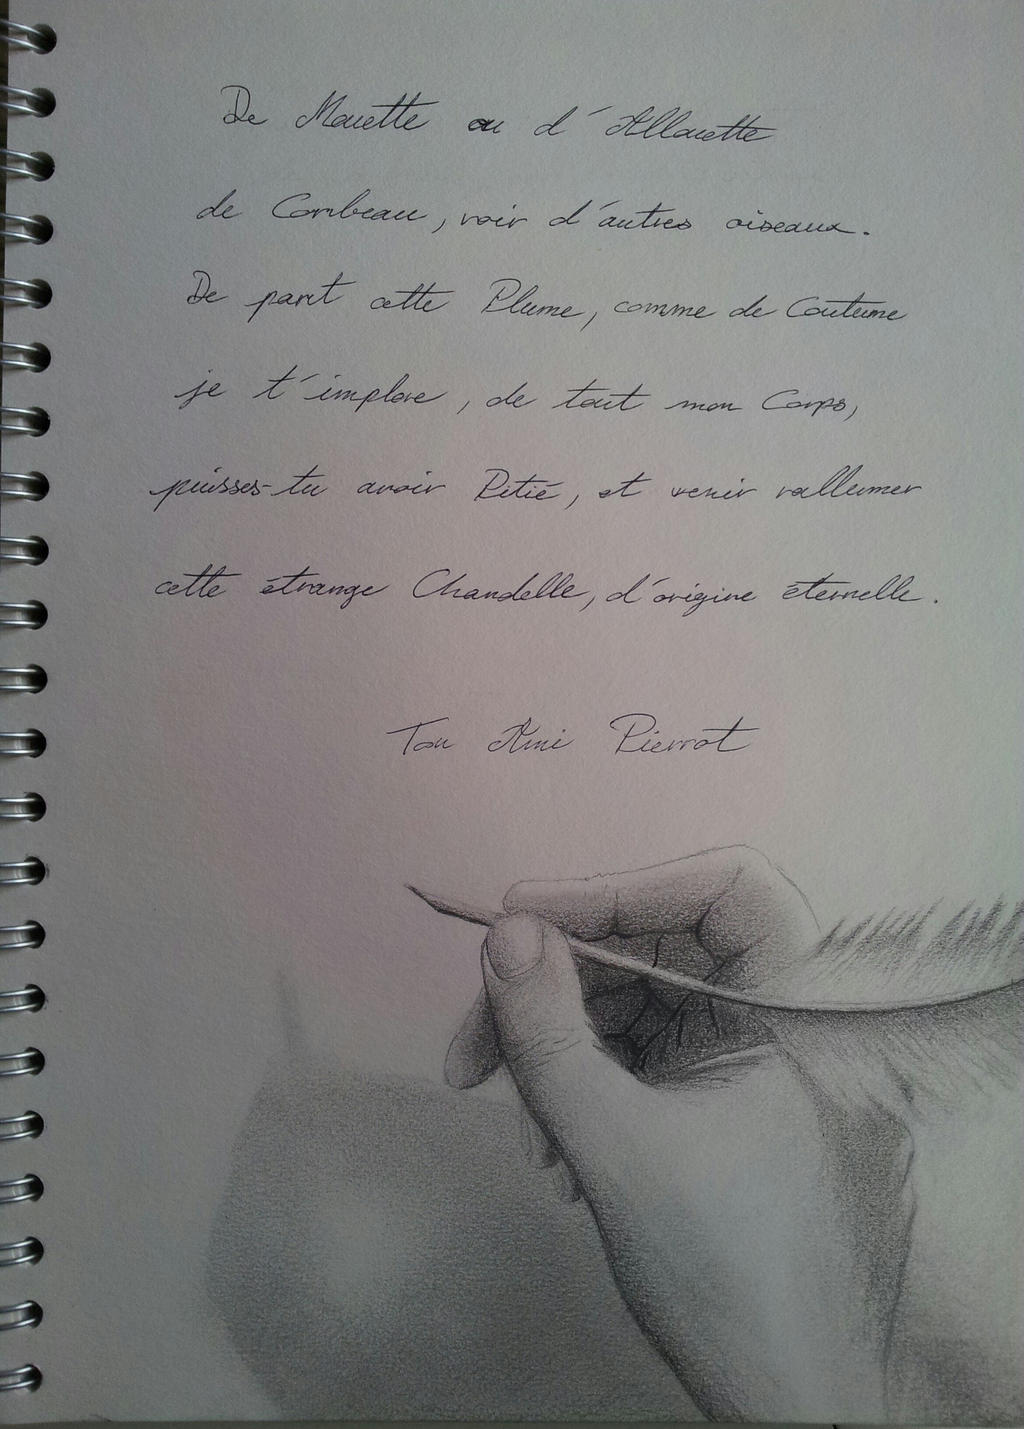 De Mouette ou d'Allouette
de Corbeau, voir d'autres oiseaux.
De part cette Plume, comme de Coutume
je t'implore, de tout mon Corps,
puisses-tu avoir Pitié, et venir rallumer
cette étrange Chandelle, d'origine éternelle.
Ton Ami Pierrot